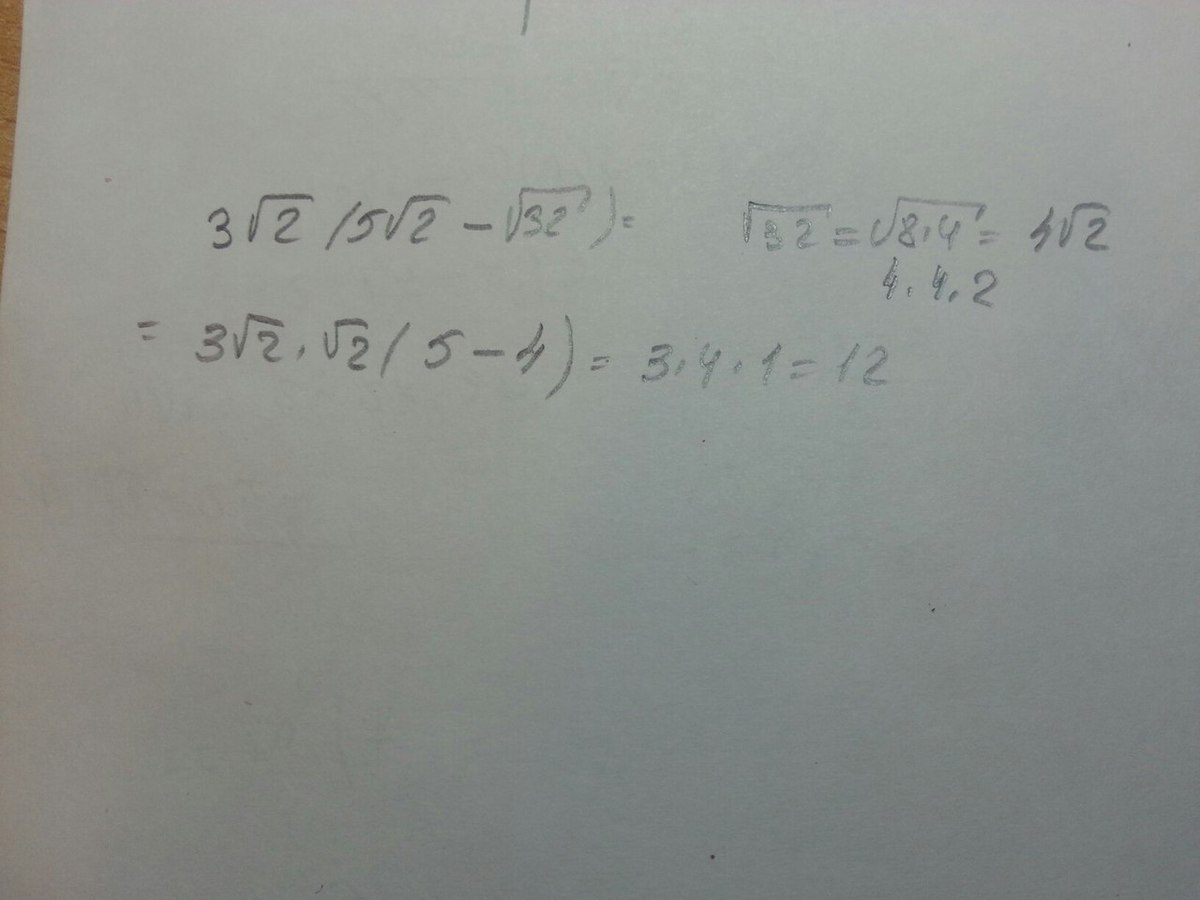 3√2 (5√2 − √32) = √32 = √8·4 = 4√2
4·4·2
= 3√2 · √2 (5 − 4) = 3·4·1 = 12